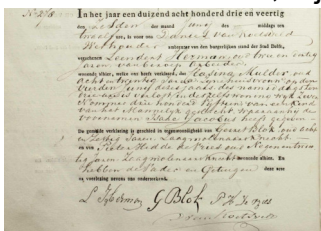 No 278
In het jaar een duizend acht honderd drie en veertig
den zesden der maand Junij des middags ten
twaalf ure, is voor ons Daniel van
Wethouder ambtenaar van den burgerlijken stand der Stad Delft,
verschenen Leendert Herman oud twee en dertig
jaren van beroep
wonende alhier, welke ons heeft verklaard, dat Casina Mulder oud
acht en twintig jaren zijne huisvrouw op den
vierden Junij dezes jaars des namiddags ten
drie ure is verlost in deszelfs woning Wijk Zeven
Nommer drie honderd vijftien van een Kind
van het Mannelijk geslacht, waaraan hij de
voornamen Jacobus heeft gegeven
De gemelde verklaring is geschied in tegenwoordigheid van Gerrit Blok oud acht
en veertig Jaren Zaagmolenaarsknecht
en van Pieter de Vries oud Negenentwin
tig jaren Zaagmolenaarsknecht wonende alhier. En
hebben de Vader en Getuigen deze acte
na voorlezing nevens ons onderteekend.
L Herman G Blok P H de Vries